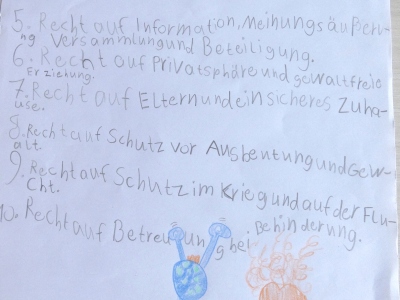 5. Recht auf Information, Meihungsäußeru-
ng Versammlungund Beteiligung.
6. Recht auf Privatsphäre und gewaltfreie
Erziehung.
7. Recht auf Elternundeinsicheres Zuha-
use.
8. Recht auf Schutz vor AusbeutungundGew-
alt.
9. Recht auf Schutz im Kriegundaufder Flu-
cht.
10. Recht auf Betreuung bei Behinderung.